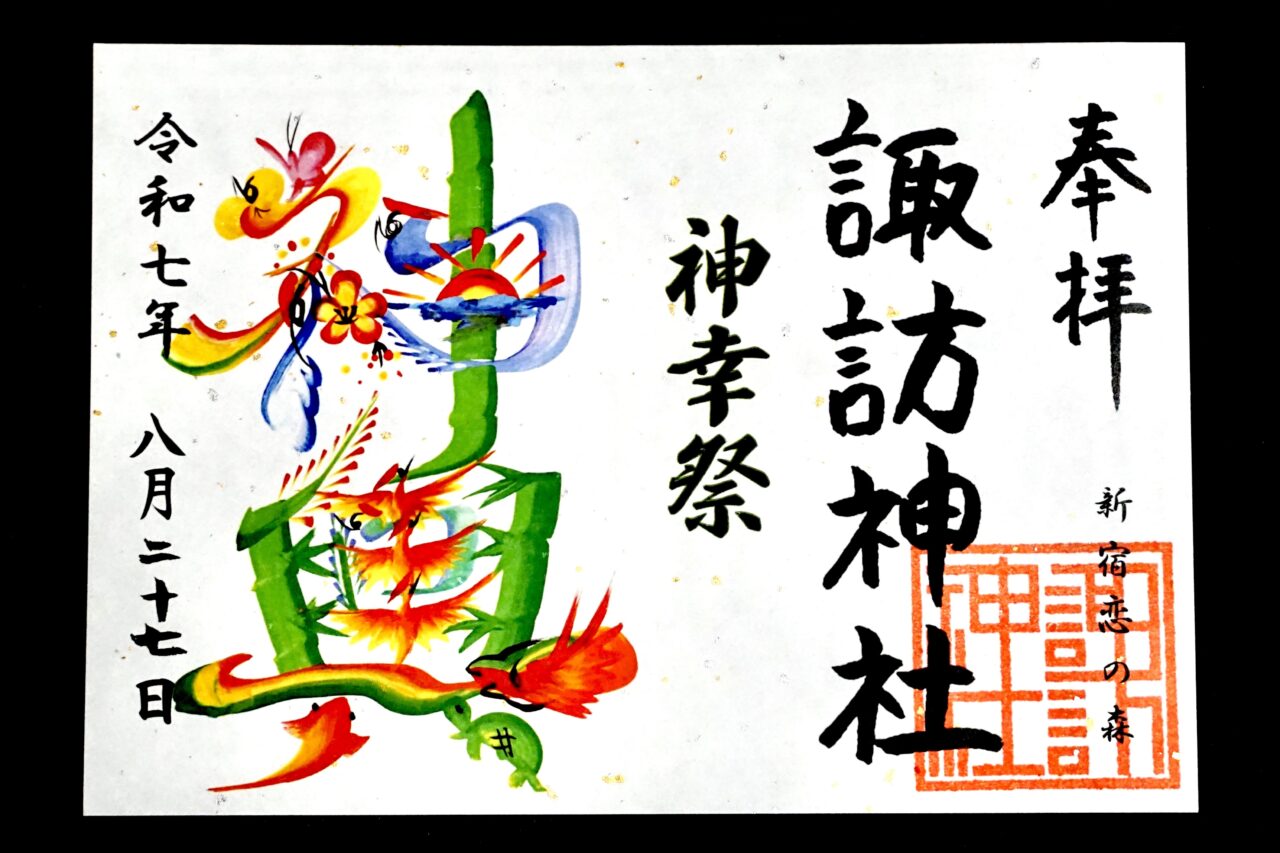 奉拝
新宿恋の森
諏訪神社
諏訪神社
神幸祭
神輿
令和七年 八月二十七日